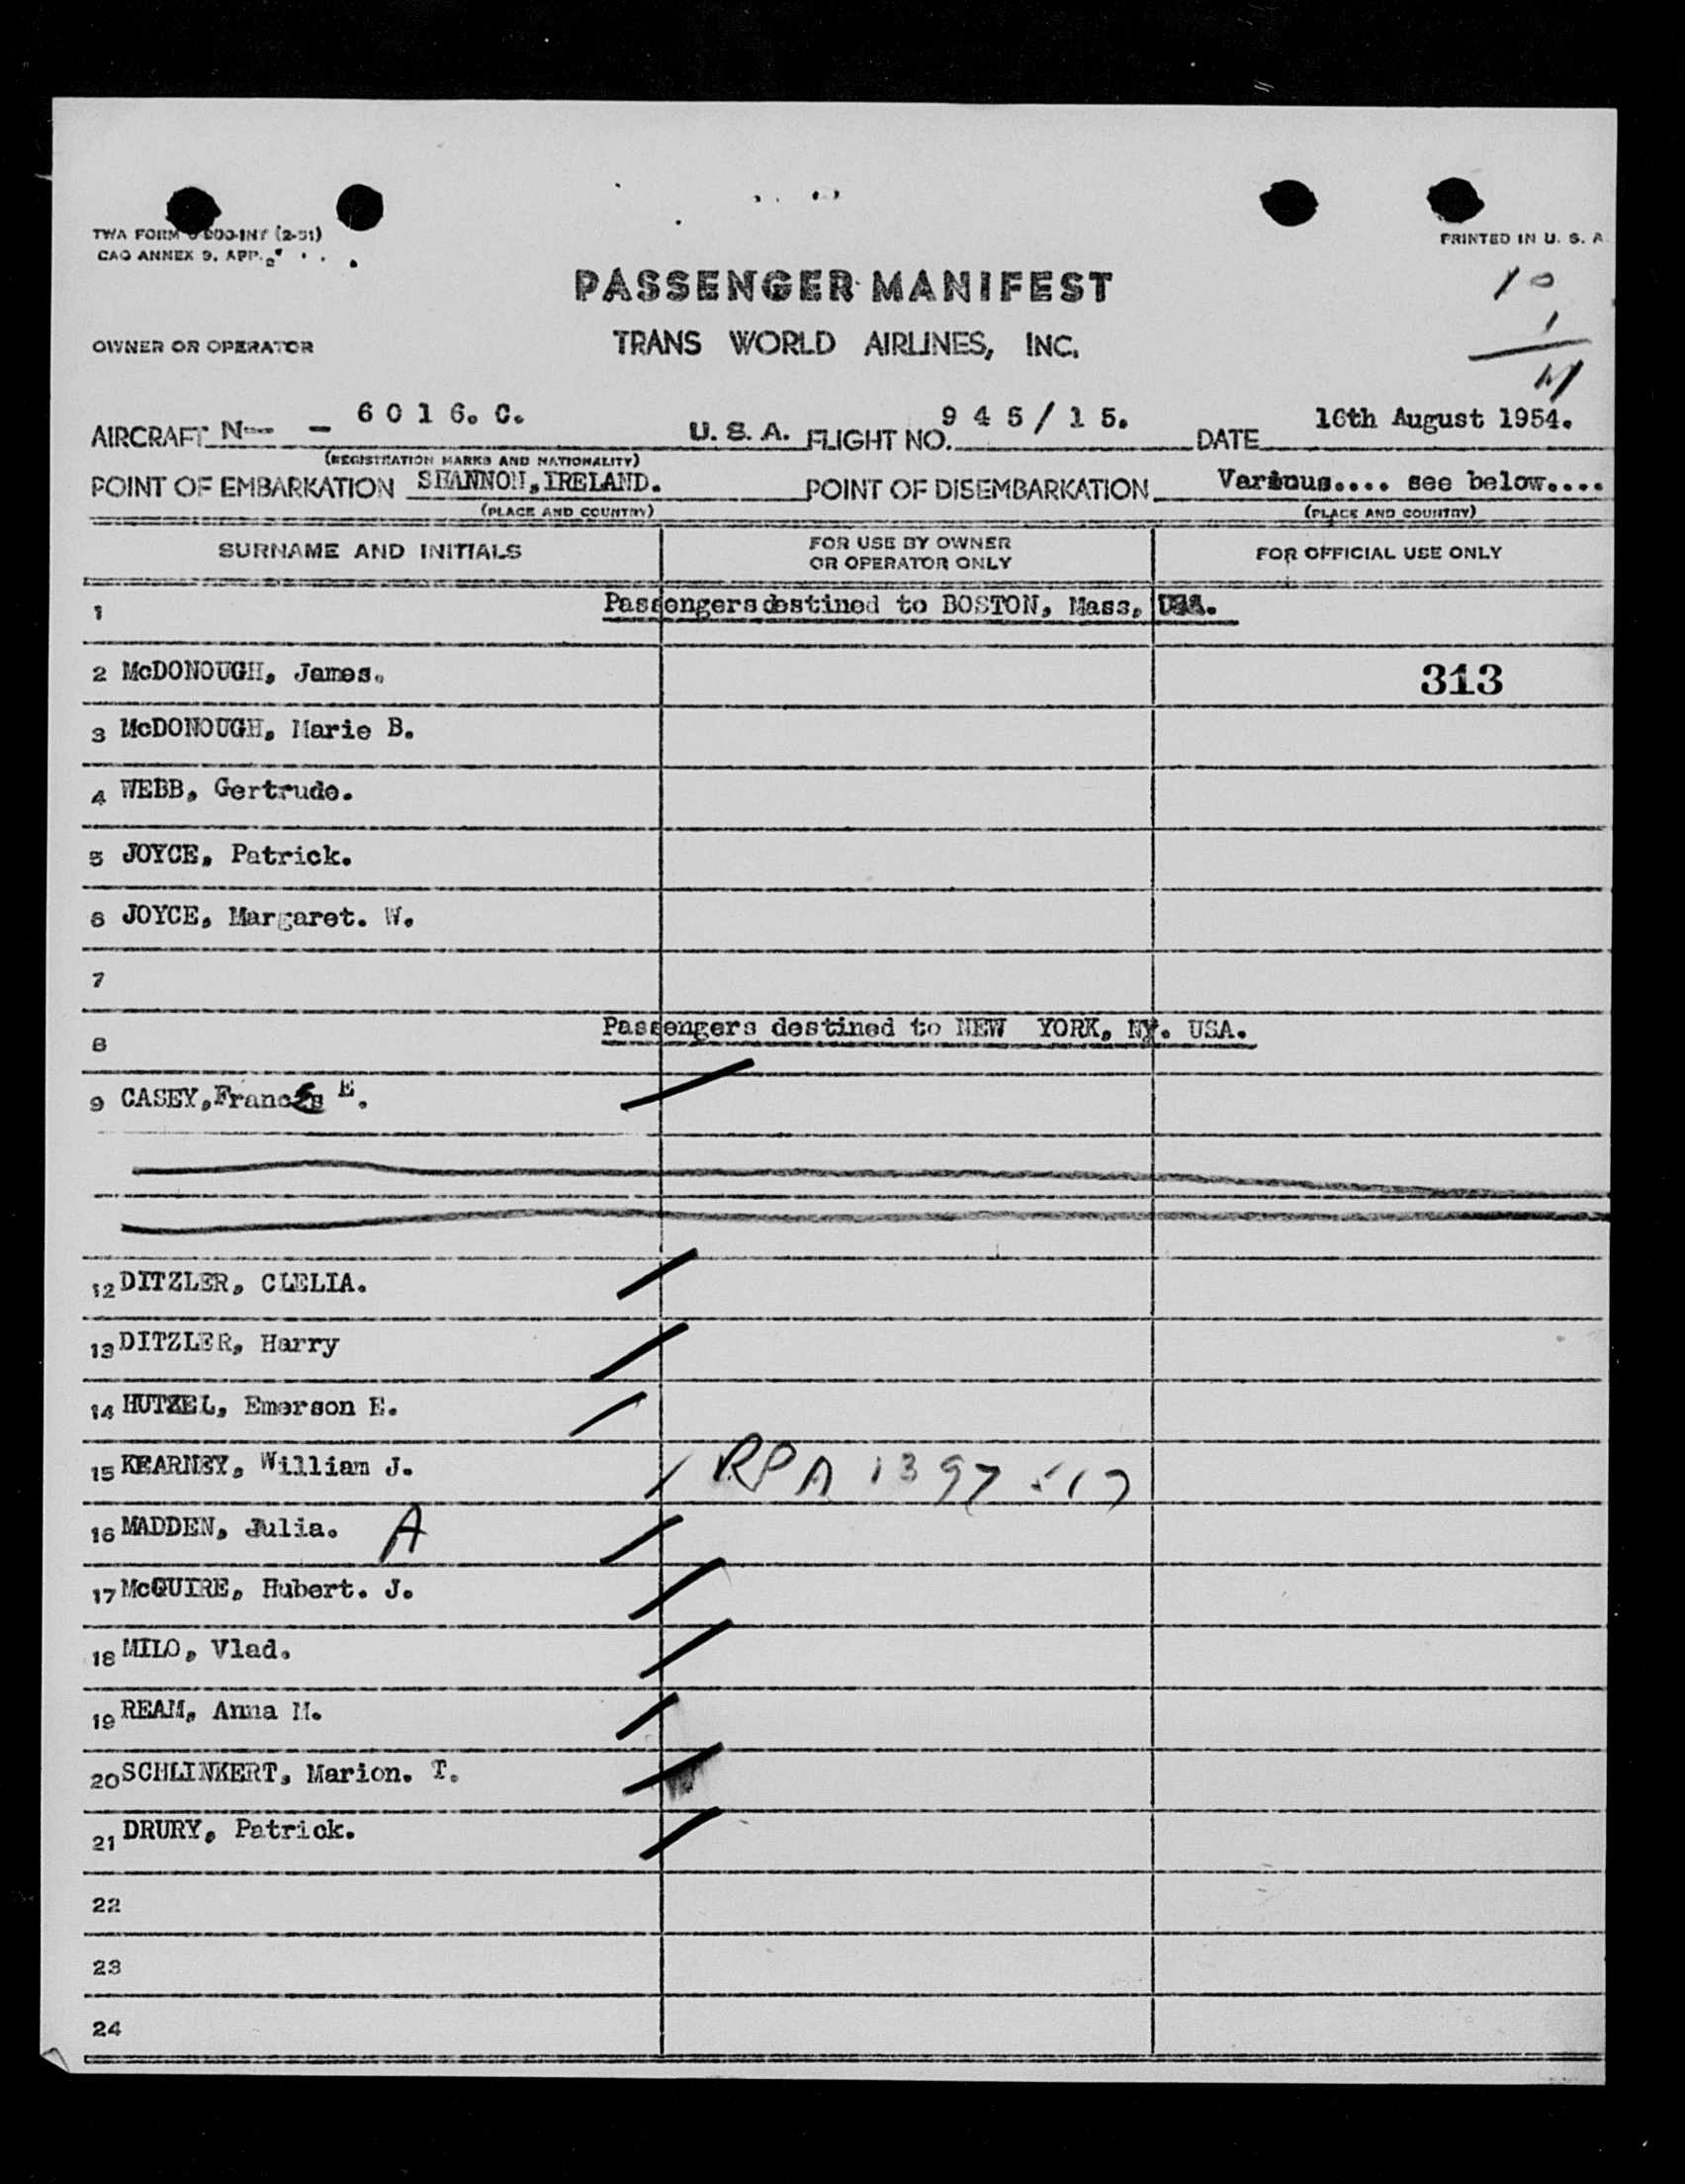 TWA FORM (2-51)
PRINTED IN U. S. A
CAO ANNEX 9. APP.
PASSENGER MANIFEST
10
1
11
OWNER OR OPERATOR TRANS WORLD AIRLINES, INC.
AIRCRAFT N-- - 6 0 1 6. C. U. S. A. FLIGHT NO. 9 4 5 / 1 5. DATE 16th August 1954.
(REGISTRATION MARKS AND NATIONALITY)
POINT OF EMBARKATION SHANNON, IRELAND. POINT OF DISEMBARKATION Various.... see below....
(PLACE AND COUNTRY) (PLACE AND COUNTRY)
SURNAME AND INITIALS FOR USE BY OWNER OR OPERATOR ONLY FOR OFFICIAL USE ONLY
1 Passengers destined to BOSTON, Mass, USA.
2 McDONOUGH, James. 313
3 McDONOUGH, Marie B.
4 WEBB, Gertrude.
5 JOYCE, Patrick.
6 JOYCE, Margaret. W.
7
8 Passengers destined to NEW YORK, NY. USA.
9 CASEY, Frances E.
12 DITZLER, CLELIA.
13 DITZLER, Harry
14 HUTZEL, Emerson E.
15 KEARNEY, William J. RPA
16 MADDEN, Julia. A
17 McGUIRE, Hubert. J.
18 MILO, Vlad.
19 REAM, Anna M.
20 SCHLINKERT, Marion. T.
21 DRURY, Patrick.
22
23
24